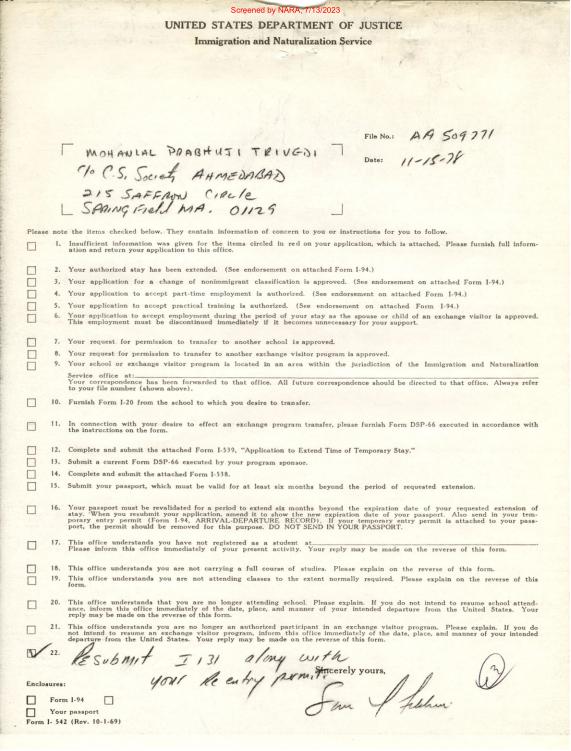 Screened by NARA, 7/13/2023
UNITED STATES DEPARTMENT OF JUSTICE
Immigration and Naturalization Service
File No.: AA 509771
MOHANLAL PRABHUJI TRIVEDI
Date: 11-15-78
c/o C.S. Society AHMEDABAD
215 SAFFRON CIRCLE
SPRINGField MA. 01129
Please note the items checked below. They contain information of concern to you or instructions for you to follow.
1. Insufficient information was given for the items circled in red on your application, which is attached. Please furnish full inform-
ation and return your application to this office.
2. Your authorized stay has been extended. (See endorsement on attached Form I-94.)
3. Your application for a change of nonimmigrant classification is approved. (See endorsement on attached Form I-94.)
4. Your application to accept part-time employment is authorized. (See endorsement on attached Form I-94.)
5. Your application to accept practical training is authorized. (See endorsement on attached Form I-94.)
6. Your application to accept employment during the period of your stay as the spouse or child of an exchange visitor is approved.
This employment must be discontinued immediately if it becomes unnecessary for your support.
7. Your request for permission to transfer to another school is approved.
8. Your request for permission to transfer to another exchange visitor program is approved.
9. Your school or exchange visitor program is located in an area within the jurisdiction of the Immigration and Naturalization
Service office at:
Your correspondence has been forwarded to that office. All future correspondence should be directed to that office. Always refer
to your file number (shown above).
10. Furnish Form I-20 from the school to which you desire to transfer.
11. In connection with your desire to effect an exchange program transfer, please furnish Form DSP-66 executed in accordance with
the instructions on the form.
12. Complete and submit the attached Form I-539, "Application to Extend Time of Temporary Stay."
13. Submit a current Form DSP-66 executed by your program sponsor.
14. Complete and submit the attached Form I-538.
15. Submit your passport, which must be valid for at least six months beyond the period of requested extension.
16. Your passport must be revalidated for a period to extend six months beyond the expiration date of your requested extension of
stay. When you resubmit your application, amend it to show the new expiration date of your passport. Also send in your tem-
porary entry permit (Form I-94, ARRIVAL-DEPARTURE RECORD). If your temporary entry permit is attached to your pass-
port, the permit should be removed for this purpose. DO NOT SEND IN YOUR PASSPORT.
17. This office understands you have not registered as a student at
Please inform this office immediately of your present activity. Your reply may be made on the reverse of this form.
18. This office understands you are not carrying a full course of studies. Please explain on the reverse of this form.
19. This office understands you are not attending classes to the extent normally required. Please explain on the reverse of this
form.
20. This office understands that you are no longer attending school. Please explain. If you do not intend to resume school attend-
ance, inform this office immediately of the date, place, and manner of your intended departure from the United States. Your
reply may be made on the reverse of this form.
21. This office understands you are no longer an authorized participant in an exchange visitor program. Please explain. If you do
not intend to resume an exchange visitor program, inform this office immediately of the date, place, and manner of your intended
departure from the United States. Your reply may be made on the reverse of this form.
22. Resubmit I 131 along with
your Re entry permit.
Sincerely yours,
Enclosures:
Form I-94
Your passport
Form I- 542 (Rev. 10-1-69)